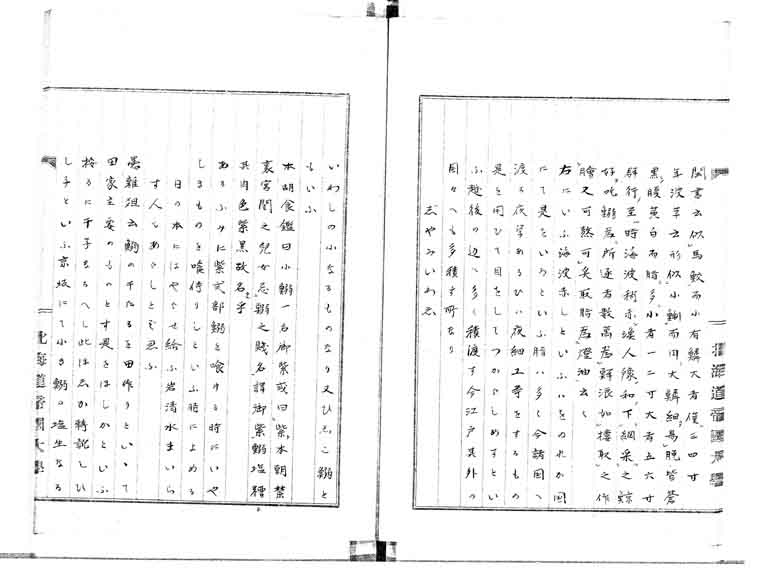 閩書云似馬鮫而小有鱗大者僅三四寸
年波草云形似小鰤而円大鱗細易脱皆蒼
黒腹黄白而脂多小者一二寸大者五六寸
群行至時海波稍赤漁人予知下網采之鯨
好吃鰯為所逐者数萬為群浪如樓取之作
膾又可熬可炙取脂為燈油云々
右にいふ海波赤しといふハをのれか国
にて是をいろといふ脂ハ多く今諸国へ
渡る夜学あるひハ夜細工等をするもの
是を用ひて目をしてつからしめすとい
ふ越後の辺へ多く積渡す今江戸其外の
国々へも多積す所なり
志やみいわし
いわしの小なるものなり又ひしこ鰯と
もいふ
本朝食鑑曰小鰯一名御紫或曰紫本朝
裏宮間之児女忌鰯之賤名譯御紫鰯塩糟
其肉色紫黒故名乎
あるふみに紫式部鰯を喰ける時にいや
しきものを喰侍りしといふ時によめる
日の本にはやらせ給ふ岩清水まいら
す人もあらしとそ思ふ
愚雑俎云鰯の干たるを田作りといゝて
田家主要のものとす是をはしかといふ
按るに干子なるへし此はしか轉訛しひ
し子といふ京坂にて小き鰯の塩生なる
北海道帝国大學
北海道帝国大學